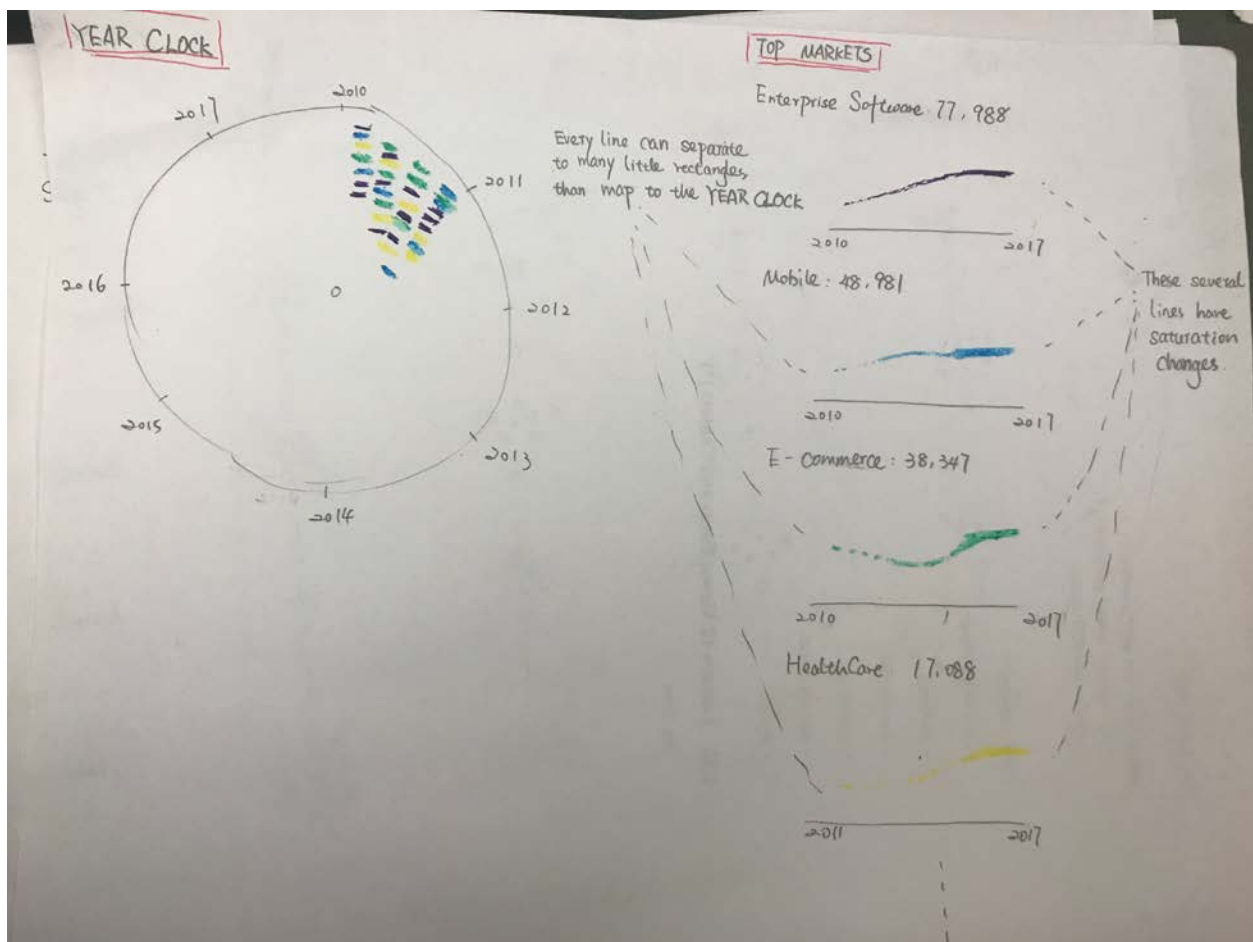 YEAR CLOCK
2010
2011
2012
2013
2014
2015
2016
2017
Every line can separate
to many little rectangles,
than map to the YEAR CLOCK
TOP MARKETS
Enterprise Software 77,988
2010 2017
Mobile : 48,981
2010 2017
E-commerce : 38,347
2010 2017
HealthCare 17,088
2011 2017
These several
lines have
saturation
changes.